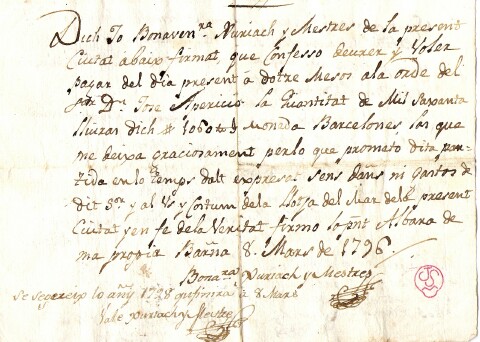 Dich Jo Bonaven.ra Puriach y Mestres de la present
Ciutat abaix firmat, que Confesso deurer y Voler
pagar del dia present á dotse Mesos a la orde del
Sr. Dn. Jose Aparicio la Quantitat de Mil Saxanta
lliuras dich # 1060 tt Moneda Barcelonesa, las que
me deixa graciosament per lo que prometo dita par-
tida en lo temps dalt expresat sens dañs ni gastos de
dit Sor. y al Us y Costum de la Llotja del Mar de la present
Ciutat y en fe de la Veritat firmo lo pnt Albara de
ma propia Barña 8 Mars de 1796
Bona.ra Puriach y Mestres
se segueix lo añy 1798 qu finira á 8 Mars
Vale Puriach y Mestres